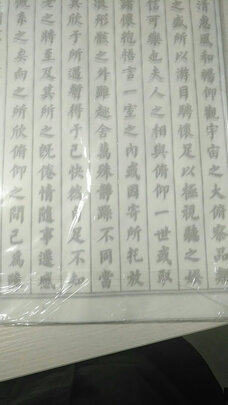 清惠風和暢仰觀宇宙之大俯察品類
之盛所以游目騁懷足以極視聽之娛
信可樂也夫人之相與俯仰一世或取
諸懷抱悟言一室之內或因寄所托放
浪形骸之外雖趣舍萬殊靜躁不同當
其欣于所遇暫得于己快然自足不知
老之將至及其所之既倦情隨事遷感
慨系之矣向之所欣俯仰之間已為陳